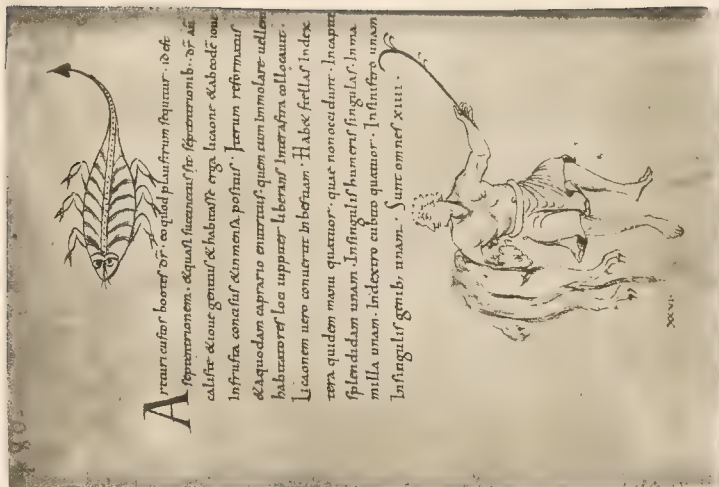 Arcturi custos bootes dr̄. eo quod plaustrum sequitur. id est
septentrionem. & quasi succinctus sit septentrionib. dr̄ aū
caliste & ioue genitus & habitasse erga licaone & ab eodē ioue
Infrusta concisus & in mensa positus. Iterum reformatus
& a quodam caprario enutritus. quem cum immolare uellent
habitatores loci iuppiter liberans Inter astra collocauit.
Licaonem uero conuertit Inbestiam. Habet stellas Index
tera quidem manu quatuor. quae non occidunt. Incapite
splendidam unam. Insingulis humeris singulas. Inma
milla unam. Indextro cubito quatuor. Insinistro unam
Insingulis genib; unam. Sunt omnes xiiii.
xxvi.